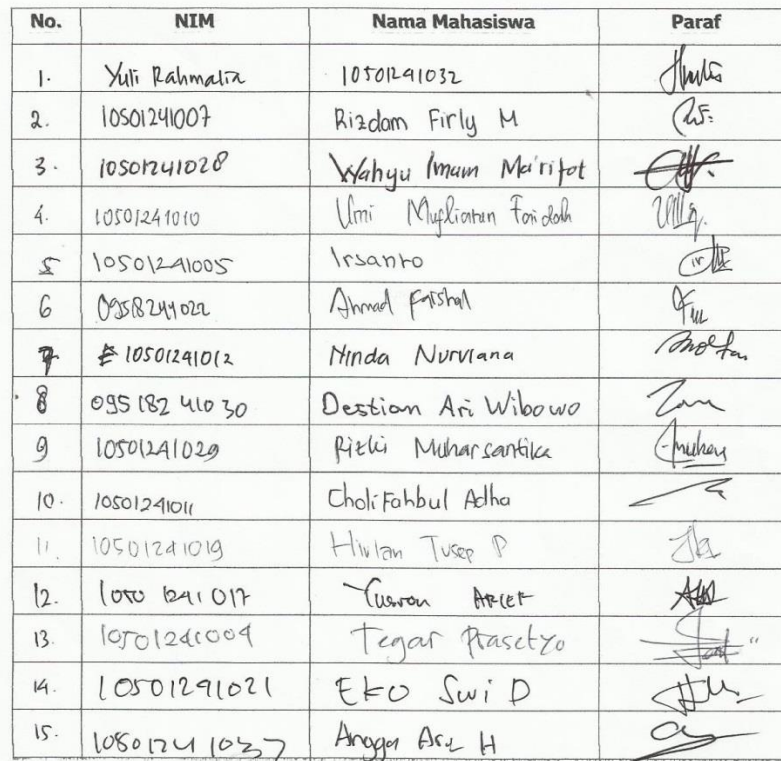 No. NIM Nama Mahasiswa Paraf
1. Yuli Rahmalia 10501241032
2. 10501241007 Rizdam Firly M
3. 10501241028 Wahyu Imam Ma'rifat
4. 10501241010 Umi Faridah
5 10501241005 Irsanto
6 09518241022 Ahmad Faishal
7 10501241012 Ninda Nurviana
8 09518241030 Destian Ari Wibowo
9 10501241029 Rizki Muharsantika
10. 10501241011 Cholifahbul Adha
11. 10501241019 P
12. 10501241017 Arief
13. 10501241004 Tegar Prasetyo
14. 10501241021 Eko Swi D
15. 10501241037 Angga H